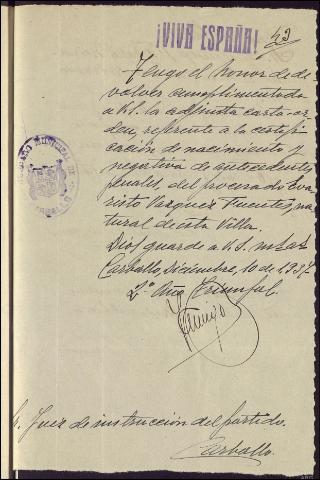 ¡VIVA ESPAÑA!
Tengo el honor de de
volver cumplimentada
a V.S. la adjunta carta-or
den, referente a la certifi
cación de nacimiento y
negativa de antecedentes
penales, del procesado Eva
risto Vazquez Fuentes, na
tural de esta Villa.
Dios guarde a V.S. m. as.
Carballo, Diciembre, 10 de 1937
2º Año Triunfal.
Sr. Juez de instrucción del partido.
Carballo.